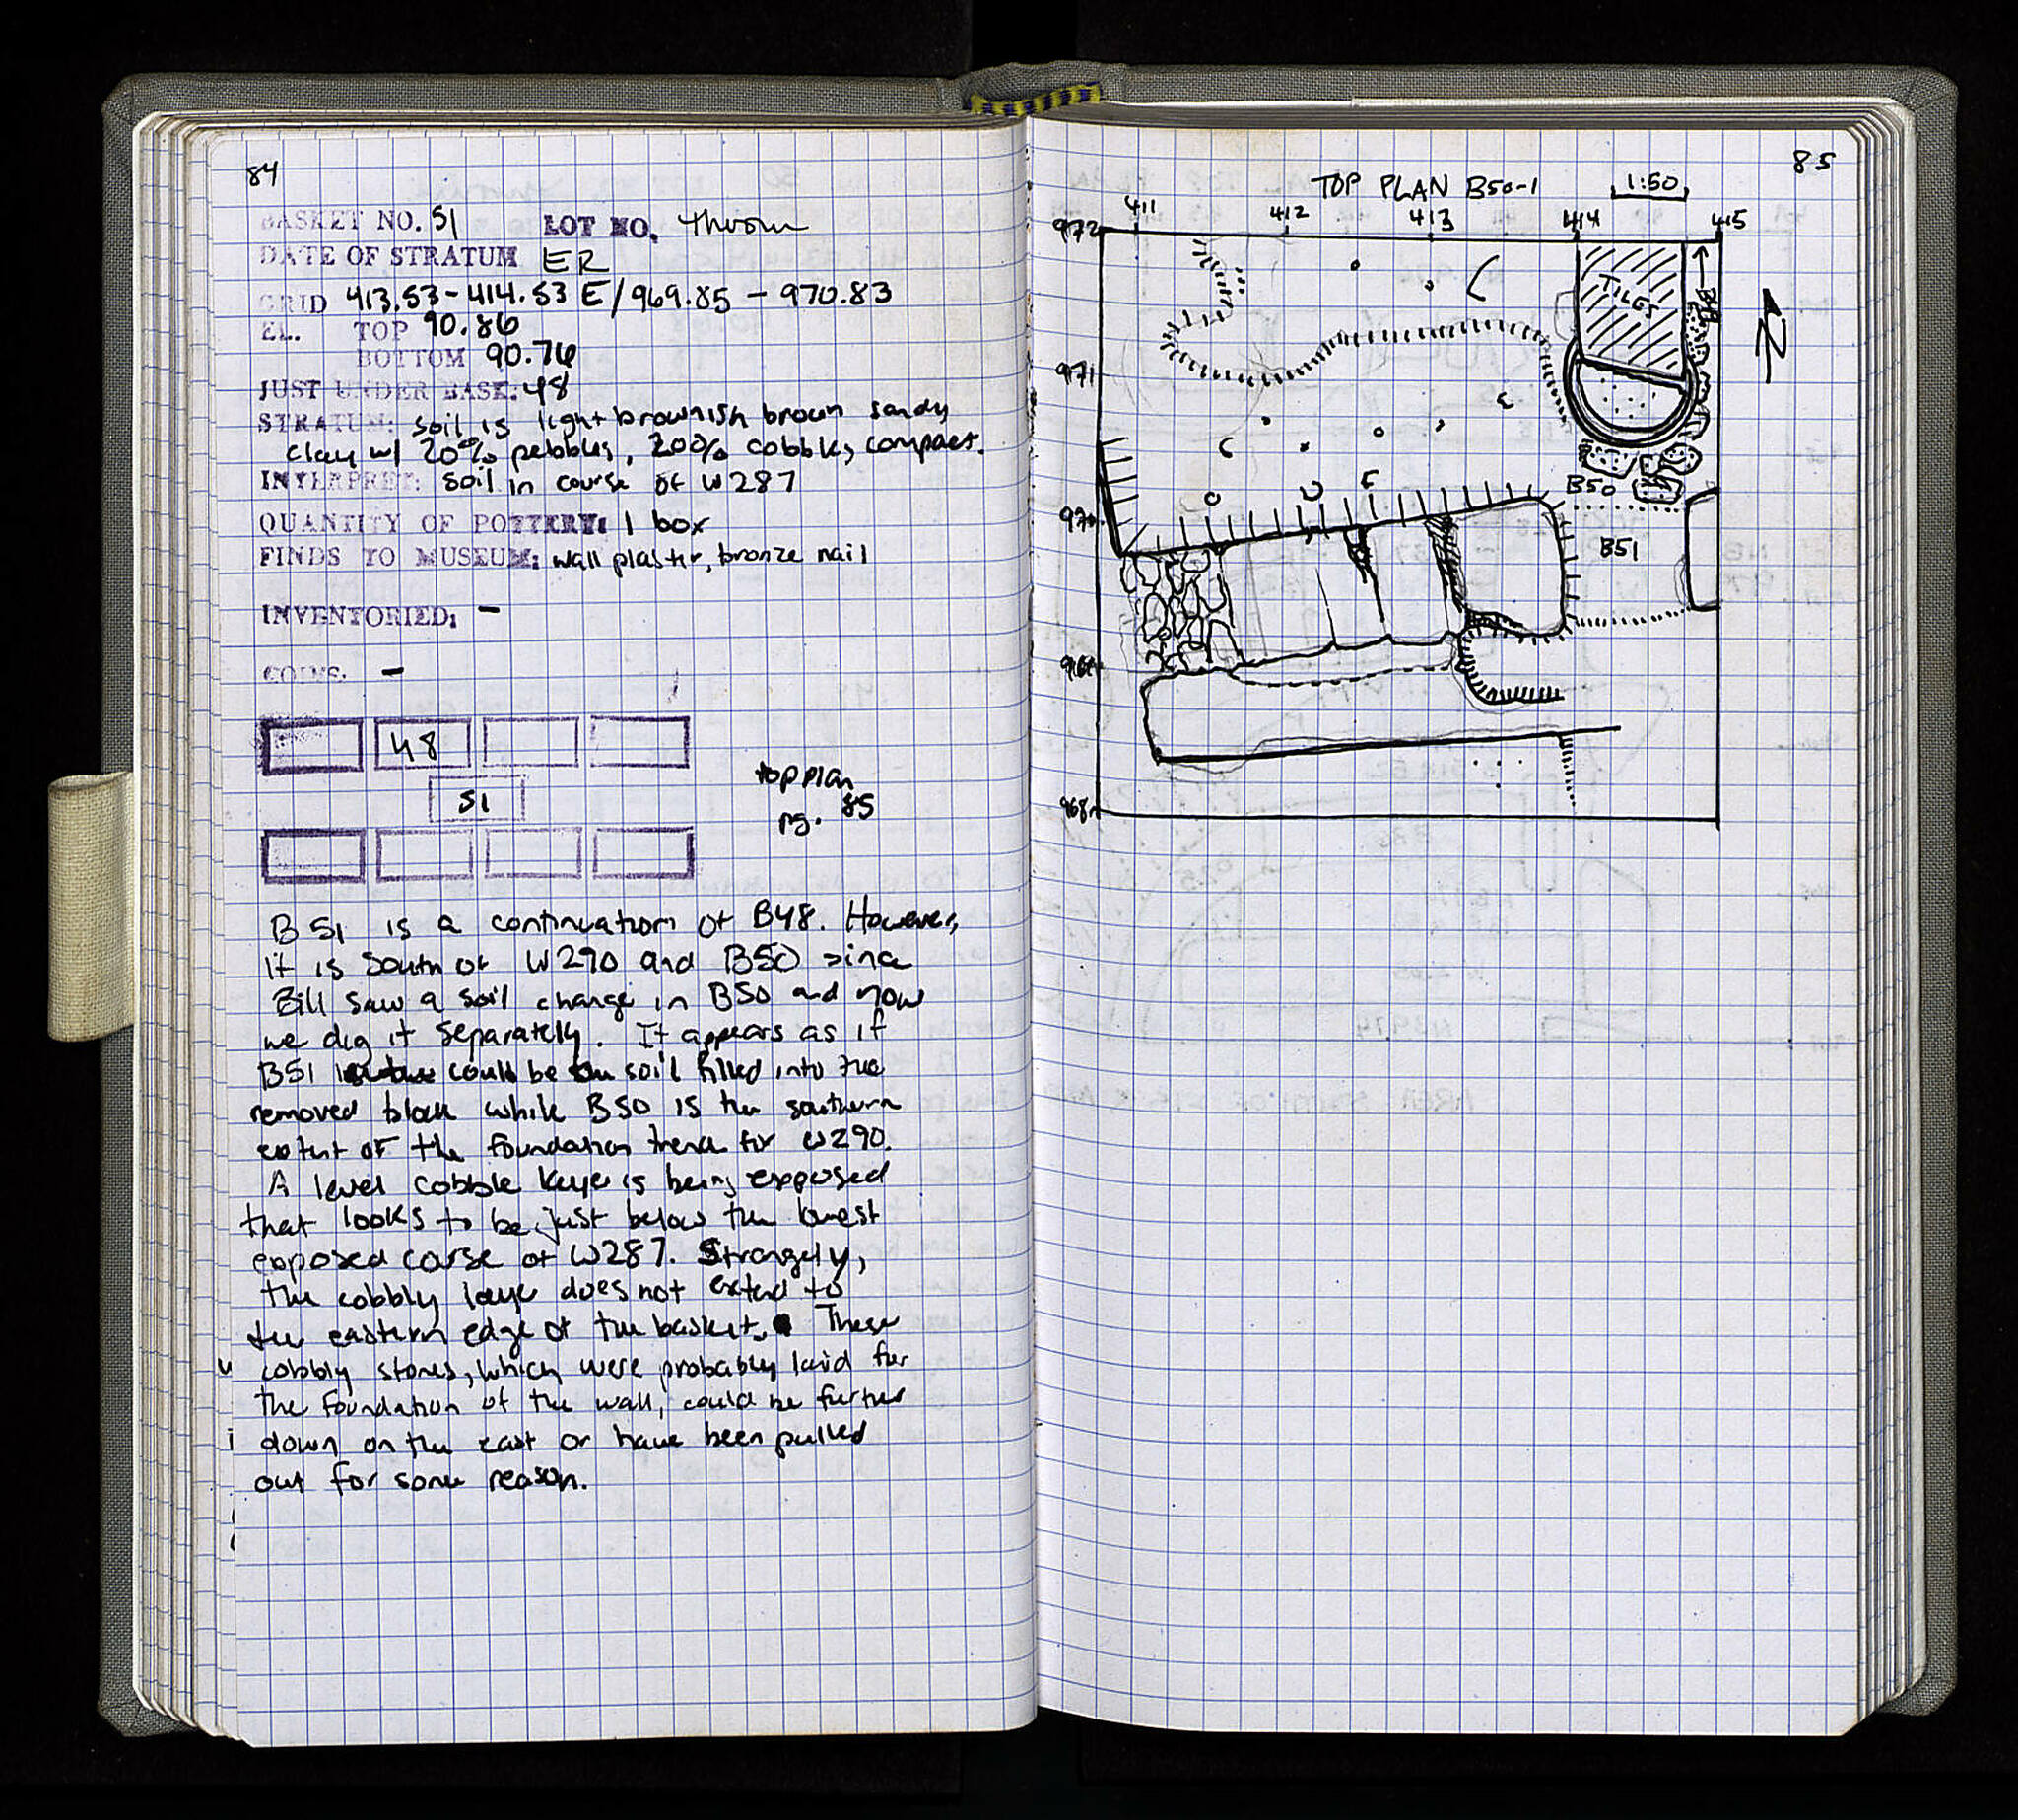 84
BASKET NO. 51 LOT NO. Thrown
DATE OF STRATUM ER
GRID 413.53-414.53 E/969.85 - 970.83
EL. TOP 90.86
BOTTOM 90.76
JUST UNDER BASK: 48
STRATUM: soil is light brownish brown sandy
clay w/ 20% pebbles, 20% cobbles, compact.
INTERPRET: Soil in course of W287
QUANTITY OF POTTERY: 1 box
FINDS TO MUSEUM: wall plaster, bronze nail
INVENTORIED: -
COINS. -
48
51
top plan
pg. 85
B51 is a continuation of B48. However,
it is South of W290 and B50 since
Bill saw a soil change in B50 and now
we dig it separately. It appears as if
B51 could be soil filled into the
removed block while B50 is the southern
extent of the foundation trench for W290.
A level cobble layer is being exposed
that looks to be just below the lowest
exposed course of W287. Strangely,
the cobbly layer does not extend to
the eastern edge of the basket. These
cobbly stones, which were probably laid for
the foundation of the wall, could be further
down on the east or have been pulled
out for some reason.
85
TOP PLAN B50-1 1:50
411 412 413 414 415
972
TILES
971
B50
970
B51
969
968
N